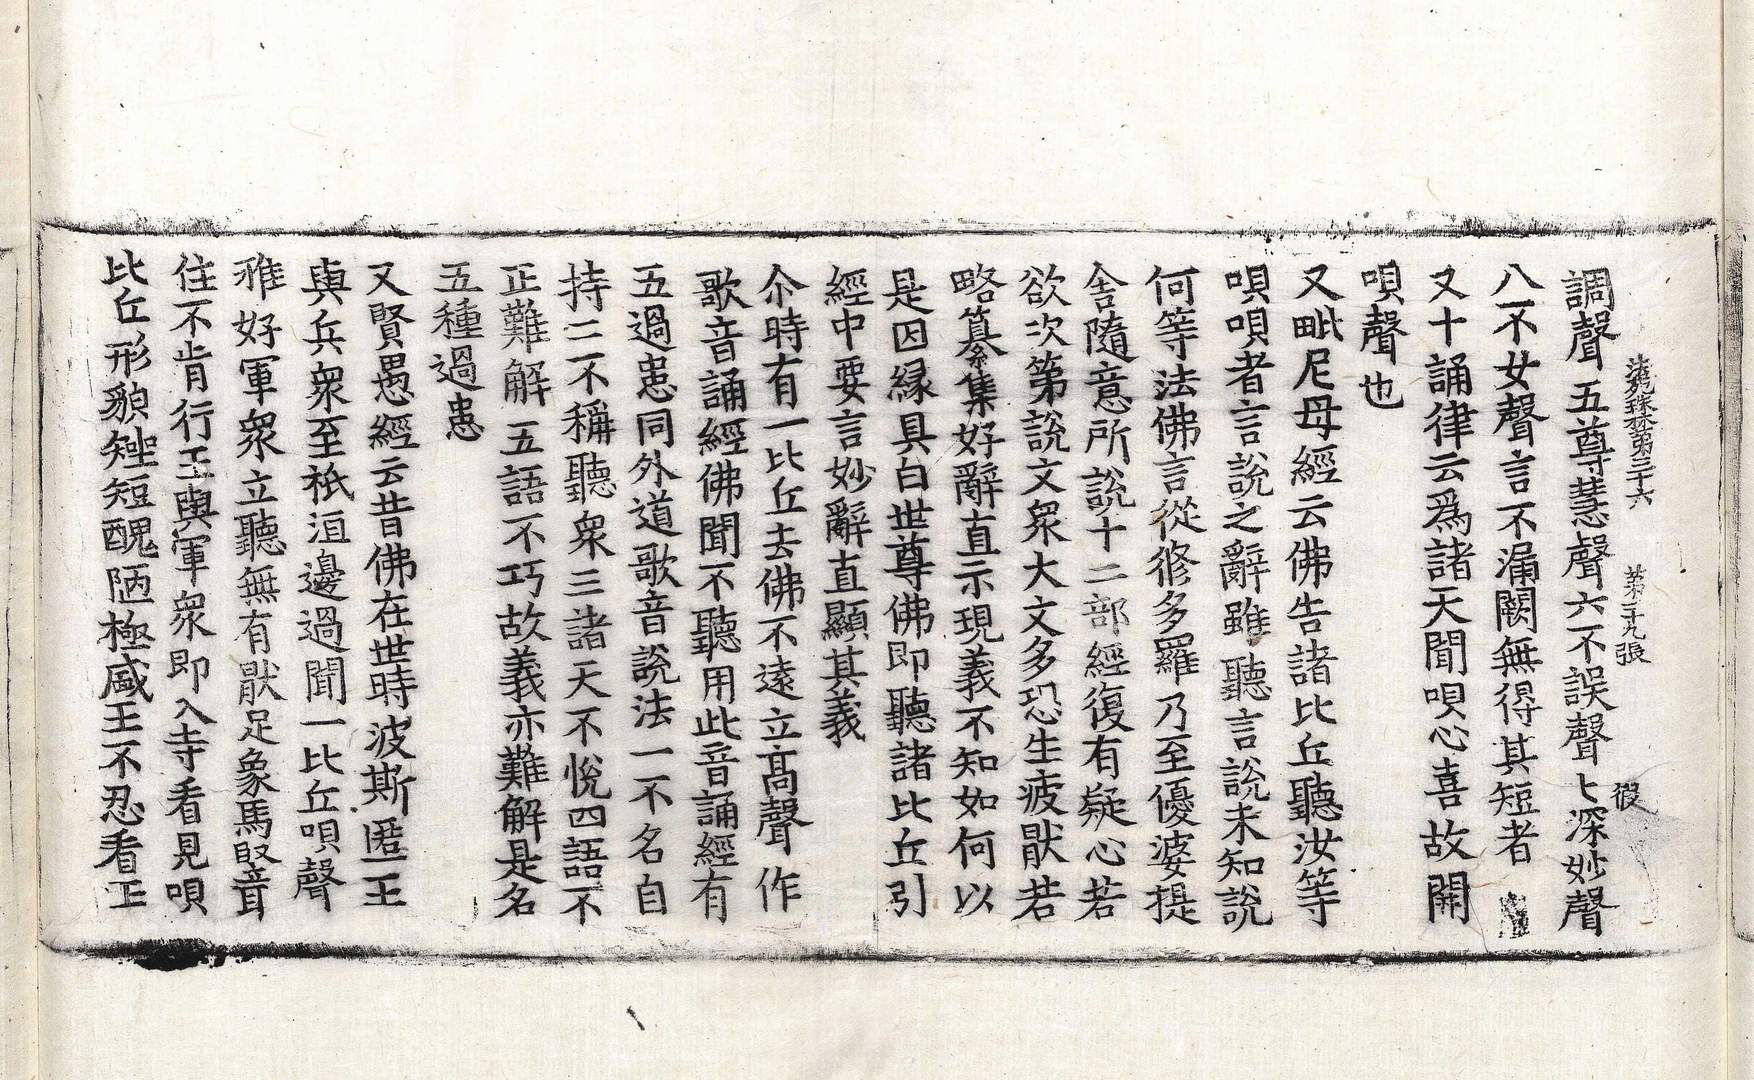 法苑珠林第三十六　第二十九張　假
調聲五尊慧聲六不誤聲七深妙聲
八不女聲言不漏闕無得其短者
又十誦律云爲諸天聞唄心喜故開
唄聲也
又毗尼母經云佛告諸比丘聽汝等
唄唄者言說之辭雖聽言說未知說
何等法佛言從修多羅乃至優婆提
舍隨意所說十二部經復有疑心若
欲次第說文衆大文多恐生疲猒若
略纂集好辭直示現義不知如何以
是因緣具白世尊佛即聽諸比丘引
經中要言妙辭直顯其義
尒時有一比丘去佛不遠立高聲作
歌音誦經佛聞不聽用此音誦經有
五過患同外道歌音說法一不名自
持二不稱聽衆三諸天不悅四語不
正難解五語不巧故義亦難解是名
五種過患
又賢愚經云昔佛在世時波斯匿王
與兵衆至祇洹邊過聞一比丘唄聲
雅好軍衆立聽無有猒足象馬竪耳
住不肯行王與軍衆即入寺看見唄
比丘形貌矬短醜陋極感王不忍看王